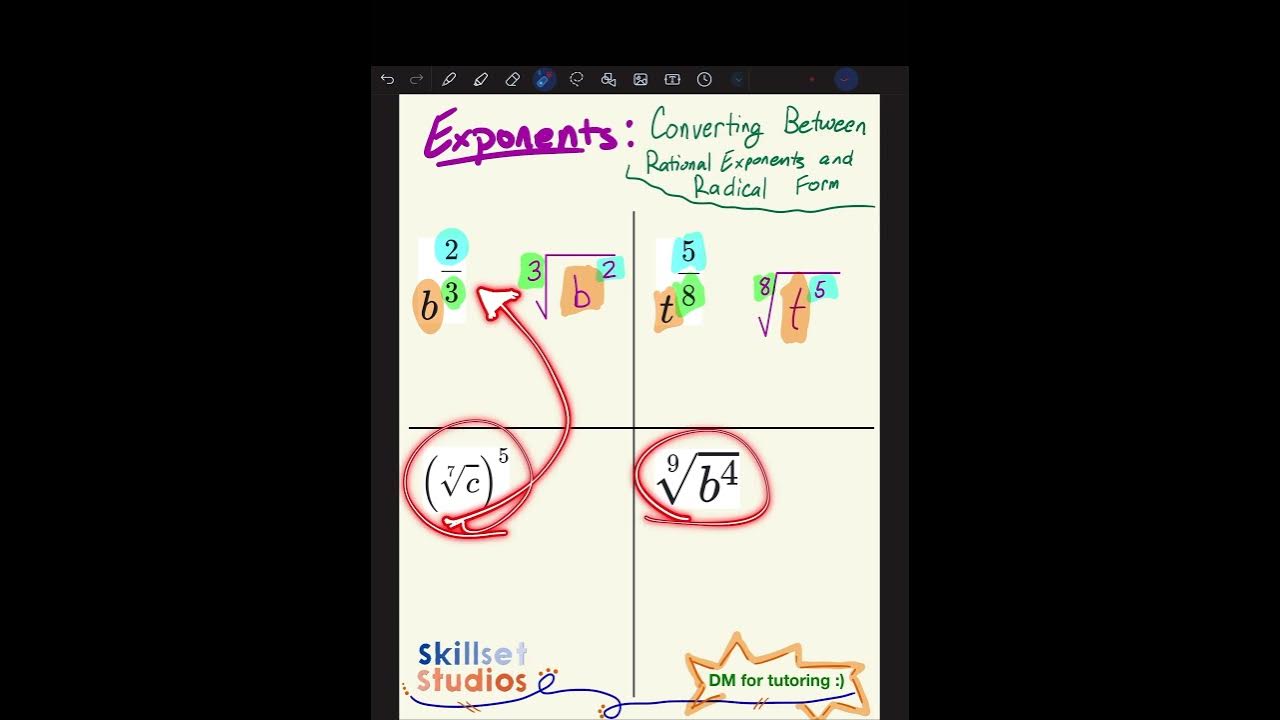 Exponents: Converting Between
Rational Exponents and
Radical Form
b^(2/3) ∛(b²)
t^(5/8) ⁸√(t⁵)
(⁷√c)⁵
⁹√(b⁴)
Skillset
Studios
DM for tutoring :)